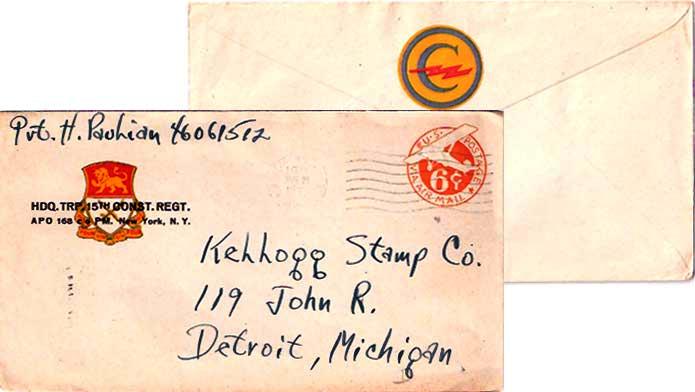 Pvt. H. Pavhian 46061512
HDQ. TRP. 15TH CONST. REGT.
APO 168 c/o PM. New York, N. Y.
U.S. POSTAGE
6¢
VIA AIR-MAIL
C
Kehhogg Stamp Co.
119 John R.
Detroit, Michigan